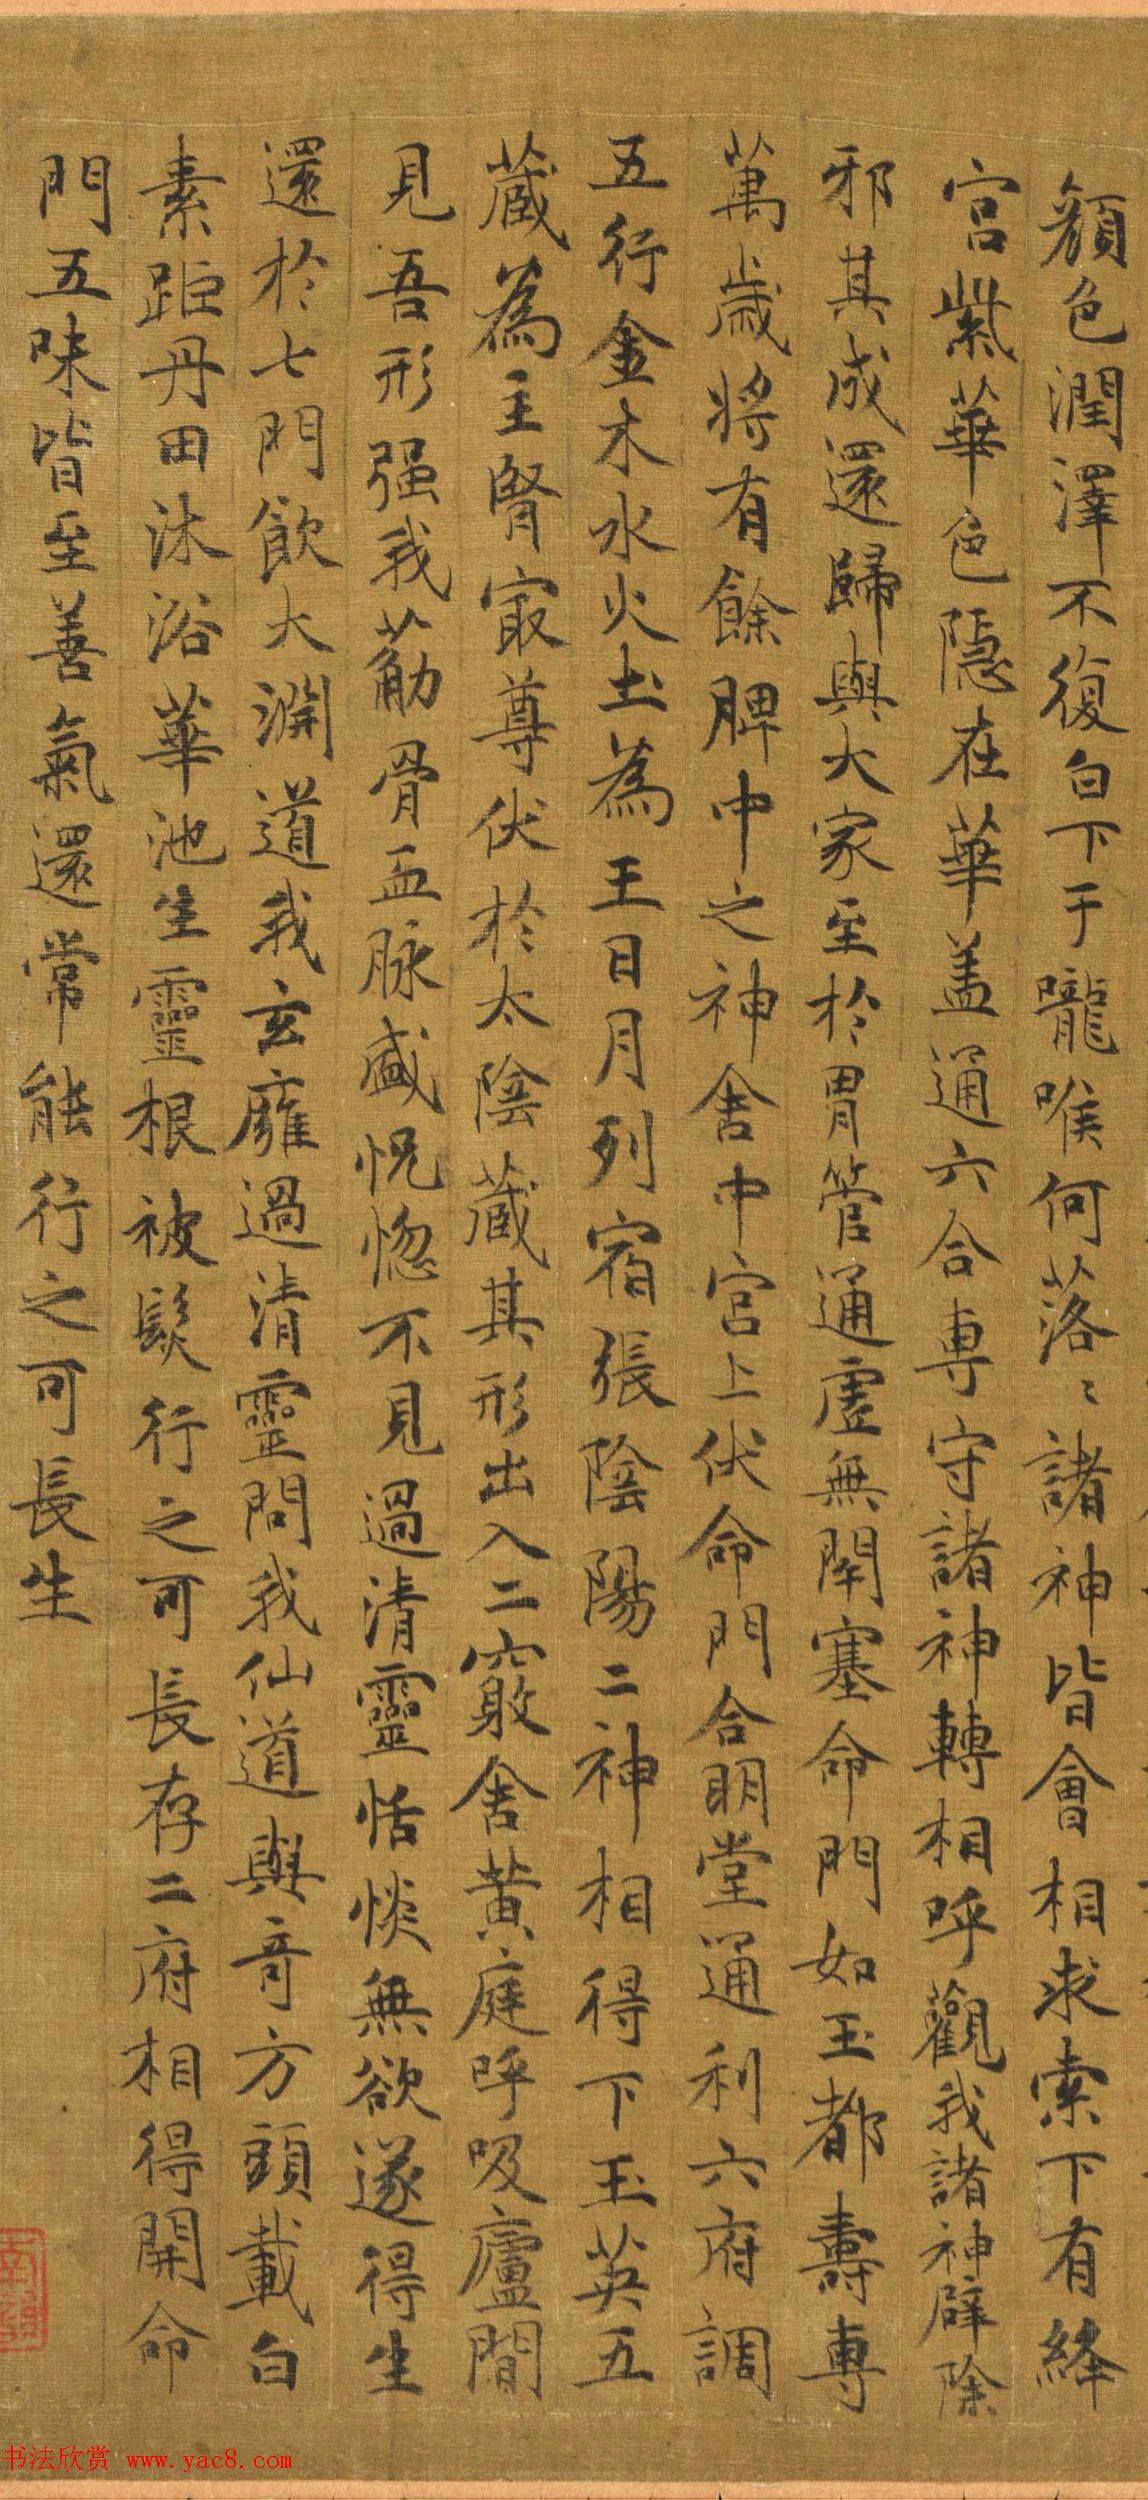 顏色潤澤不復白下于嚨喉何落落諸神皆會相求索下有絳
宮紫華色隱在華盖通六合專守諸神轉相呼觀我諸神辟除
邪其成還歸與大家至於胃管通虛無閉塞命門如玉都壽專
萬歲將有餘脾中之神舍中宮上伏命門合明堂通利六府調
五行金木水火土為王日月列宿張陰陽二神相得下玉英五
藏為主腎㝡尊伏於太陰藏其形出入二竅舍黃庭呼吸廬間
見吾形强我筋骨血脉盛怳惚不見過清靈恬惔無欲遂得生
還於七門飲大淵道我玄廱過清靈問我仙道與奇方頭載白
素距丹田沐浴華池生靈根被髮行之可長存二府相得開命
門五味皆至善氣還常能行之可長生
书法欣赏 www.yac8.com